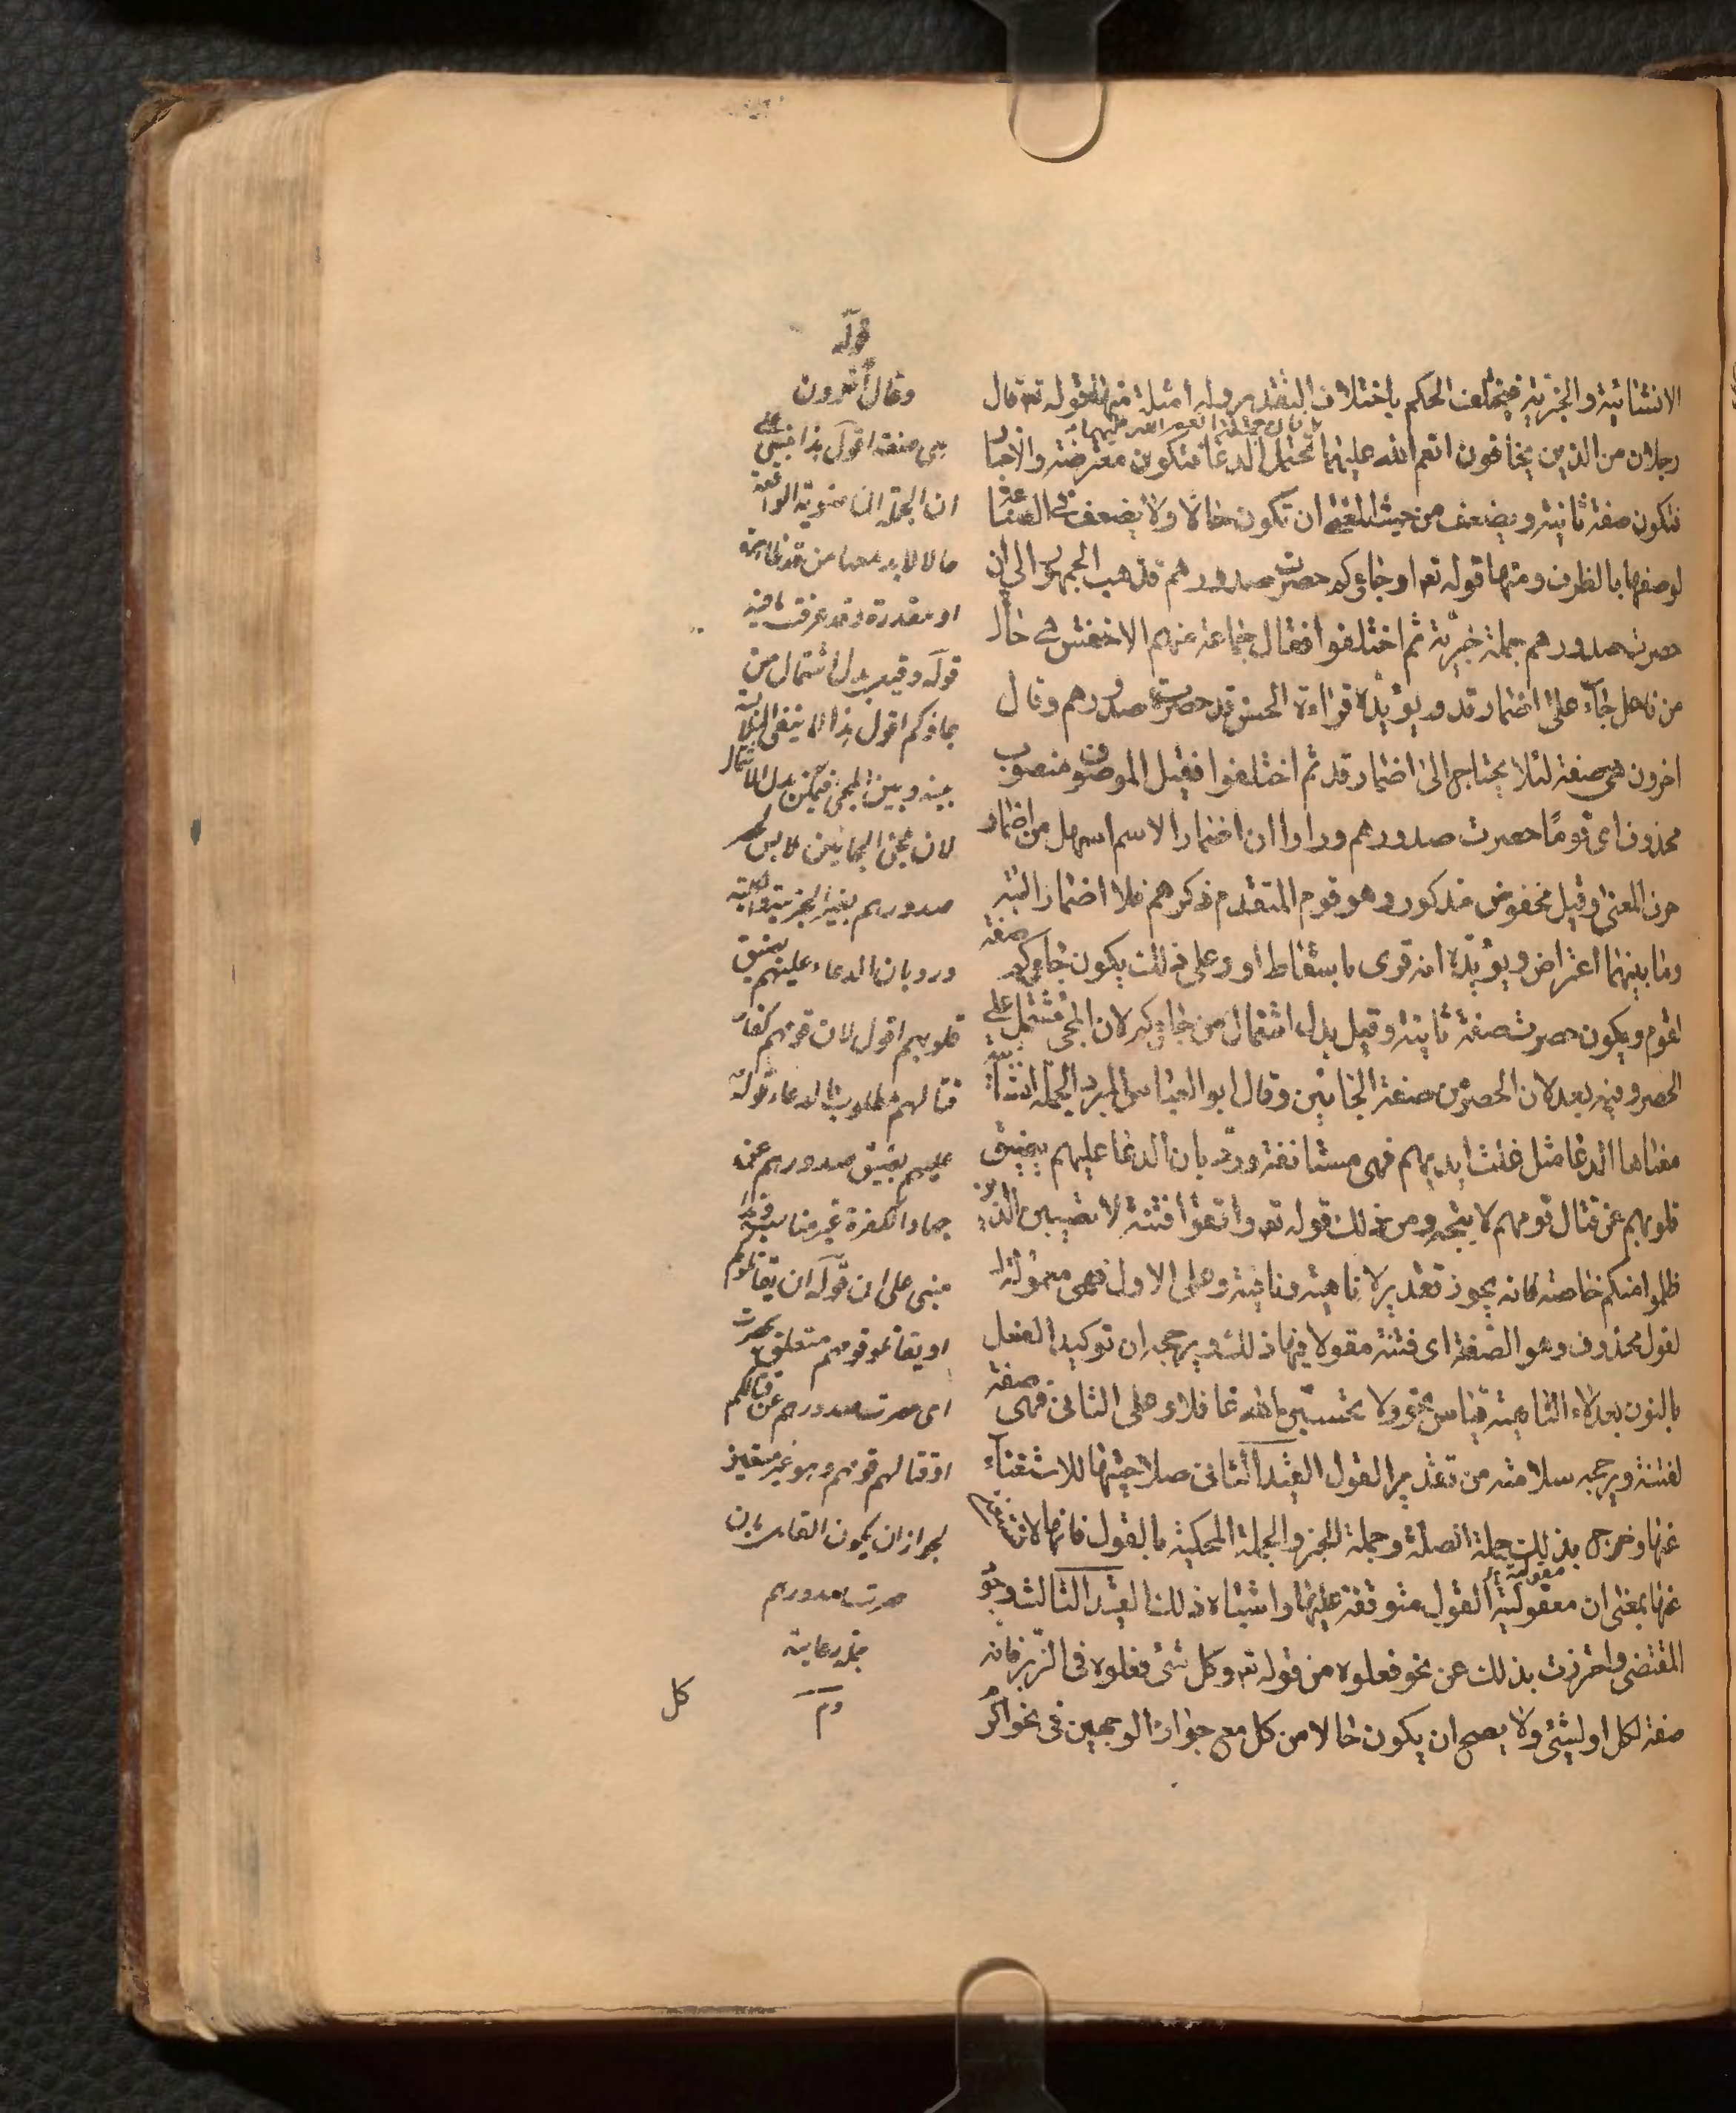 الانشائية والخبرية فيختلف الحكم باختلاف التقدير وله امثلة منها قوله تعـ قال
رجلان من الذين يخافون انعم الله عليهما تحتمل الدعا فتكون معترضة والاخبار
فتكون صفة ثانية ويضعف من حيث المعنى ان تكون حالا ولا يضعف في الصناعة
لوصفها بالظرف ومنها قوله تعـ او جاؤكم حصرت صدورهم فذهب الجمهور الى ان
حصرت صدورهم جملة خبرية ثم اختلفوا فقال جماعة منهم الاخفش هي حال
من فاعل جاء على اضمار قد ويؤيده قراءة الحسن قد حصرت صدورهم وقال
اخرون هي صفة لئلا يحتاج الى اضمار قد ثم اختلفوا فقيل الموصوف منصوب
محذوف اى قوما حصرت صدورهم وراوا ان اضمار الاسم اسهل من اضمار
حرف المعنى وقيل مخفوض مذكور وهو قوم المتقدم ذكرهم فلا اضمار البتة
وما بينهما اعتراض ويؤيده انه قرى باسقاط او وعلى ذلك يكون جاؤكم صفة
لقوم ويكون حصرت صفة ثانية وقيل بدل اشتمال من جاؤكم لان المجئ مشتمل على
الحصر وفيه بعد لان الحصر من صفة الجائين وقال ابو العباس المبرد الجملة انشائية
معناها الدعا مثل غلت ايديهم فهى مستانفة ورد بان الدعا عليهم بضيق
قلوبهم عن قتال قومهم لا يتجه ومن ذلك قوله تعـ واتقوا فتنة لا تصيبن الذين
ظلموا منكم خاصة فانه يجوز تقدير لا ناهية ونافية وعلى الاول فهى مقولة
لقول محذوف وهو الصفة اى فتنة مقولا فيها ذلك ويرجحه ان توكيد الفعل
بالنون بعد لا الناهية قياس نحو ولا تحسبن الله غافلا وعلى الثانى فهى صفة
لفتنة ويرجحه سلامته من تقدير القول القيد الثانى صلاحيتها للاستغناء
عنها وخرج بذلك جملة الصلة وجملة الخبر والجملة المحكية بالقول فانها لا يستغنى
عنها بمعنى ان معقولية القول متوقفة عليها واشباه ذلك القيد الثالث وجود
المقتضى واحترزت بذلك عن نحو فعلوه من قوله تعـ وكل شئ فعلوه فى الزبر فانه
صفة لكل او لشئ ولا يصح ان يكون حالا من كل مع جواز الوجهين فى نحو اكرم
كل
قوله
وقال اخرون
هى صفة اقول هذا مبنى على
ان الجملة الماضوية الواقعة
حالا لا بد معها من قد ظاهرة
او مقدرة وقد عرفت ما فيه
قوله وقيل بدل اشتمال من
جاؤكم اقول هذا
بينه وبين المجئ
صدورهم
ورد بان الدعاء عليهم بضيق
قلوبهم اقول لان قومهم كفار
فقتالهم مطلوب
عليهم بضيق صدورهم عن
جهاد الكفرة غير مناسب
مبنى على ان قوله ان يقاتلوكم
او يقاتلوا قومهم متعلق بحصرت
اى حصرت صدورهم عن قتالكم
او قتالهم قومهم وهو غير متعين
لجواز ان يكون
حصرت صدورهم
جملة دعائية